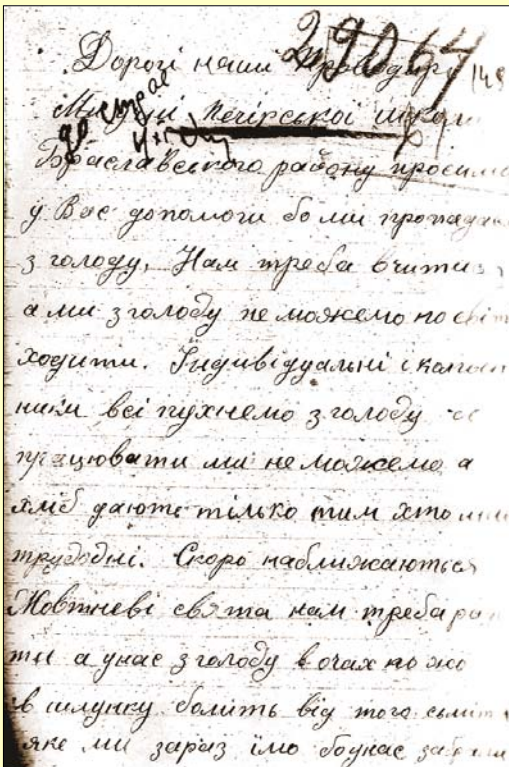 29064
Дорогі наші
Ми учні Печірської школи
Брацлавського району просимо
у Вас допомоги бо ми пропадаємо
з голоду. Нам треба вчитись
а ми з голоду не можемо по світ
ходити. Індивідуальні і колгосп
ники всі пухнемо з голоду
працювати ми не можемо а
хліб дають тільки тим хто
трудодні. Скоро наближаються
Жовтневі свята нам треба
а унас з голоду в очах
в шлунку болить від того
яке ми зараз їмо боунас забрали